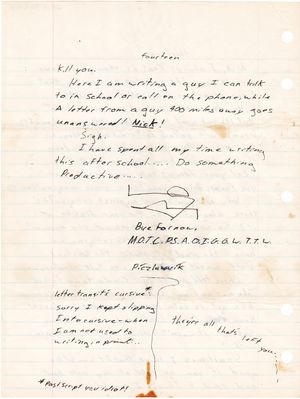 fourteen
Kill you.
Here I am writing a guy I can talk
to in school or call on the phone, while
A letter from a guy 400 miles away goes
unanswered! Nick!
Sigh.
I have spent all my time writing
this after school..... Do something
Productive....
Bye For now,
M.O.T.L.P.S.A.O.I.G.G.W.T.T.W.
letter transits cursive*
sorry I kept slipping
Into cursive - when
I am not used to
writing in print...
they're all
that's
left
you.
*Postscript you idiot!